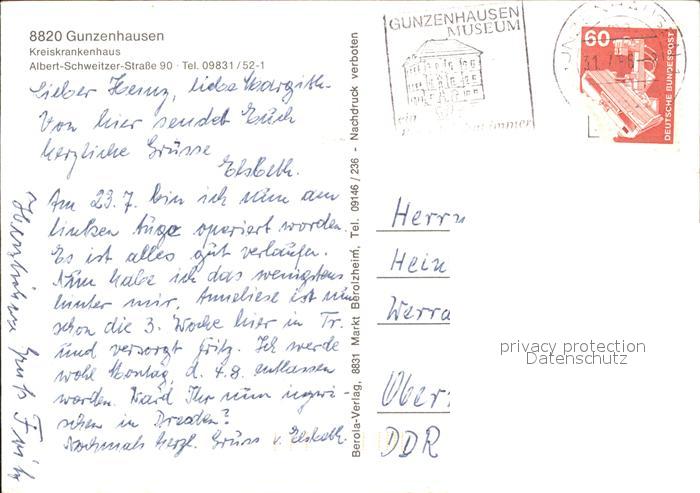 8820 Gunzenhausen
Kreiskrankenhaus
Albert-Schweitzer-Straße 90 · Tel. 09831/52-1
Lieber Heinz, liebe Margith
Von hier sendet Euch
herzliche Grüsse
Elsbeth.
Am 23.7. bin ich nun am
linken Auge operiert worden.
Es ist alles gut verlaufen.
Nun habe ich das wenigstens
hinter mir. Anneliese ist nun
schon die 3. Woche hier in Tr.
und versorgt Fritz. Ich werde
wohl Montag, d. 4.8. entlassen
worden. Ward Ihr nun inzwi-
schen in Dresden?
Nochmals herzl. Grüss v. Elsbeth.
Herzlichen Gruß Fritz
Berola-Verlag, 8831 Markt Berolzheim, Tel. 09146/236 - Nachdruck verboten
GUNZENHAUSEN
MUSEUM
ein
immer
31.7.86
60
DEUTSCHE BUNDESPOST
Herrn
Hein
Werra
Ober
DDR
privacy protection
Datenschutz